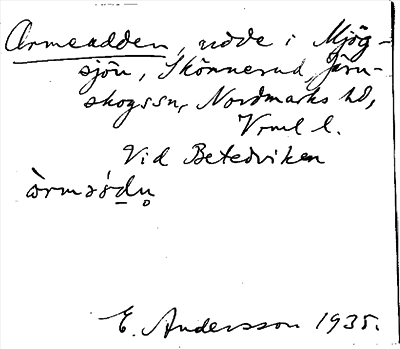 Ormeudden, udde i Mjög-
sjön, Skönnerud, Järn-
skogssn, Nordmarks hd,
Vrml l.
Vid Betedviken
E. Andersson 1935.